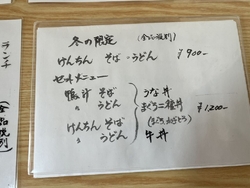 冬の限定 (全品税別)
けんちん そば・うどん ¥900-
セットメニュー
鴨汁 そば うな丼
〃 うどん まぐろ二種丼
(まぐろ・ねぎとろ)
けんちん そば 牛丼
〃 うどん
¥1,200-
ランチ
(全品税別)